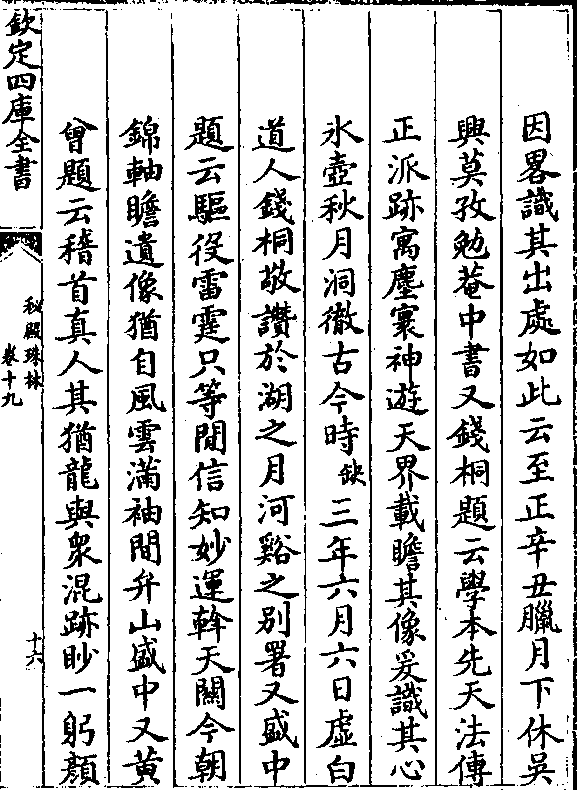 因畧識其出處如此云至正辛丑臘月下休吳
興莫孜勉菴中書又錢桐題云學本先天法傳
正派跡寓塵寰神遊天界載瞻其像爰識其心
氷壺秋月洞徹古今時缺三年六月六日虛白
道人錢桐敬讚於湖之月河谿之别署又盛中
題云驅役雷霆只等閒信知妙運斡天關今朝
錦軸瞻遺像猶自風雲滿袖間弁山盛中又黄
曾題云稽首真人其猶龍與衆混跡眇一躬顔
欽定四庫全書
秘殿珠林
卷十九
十六